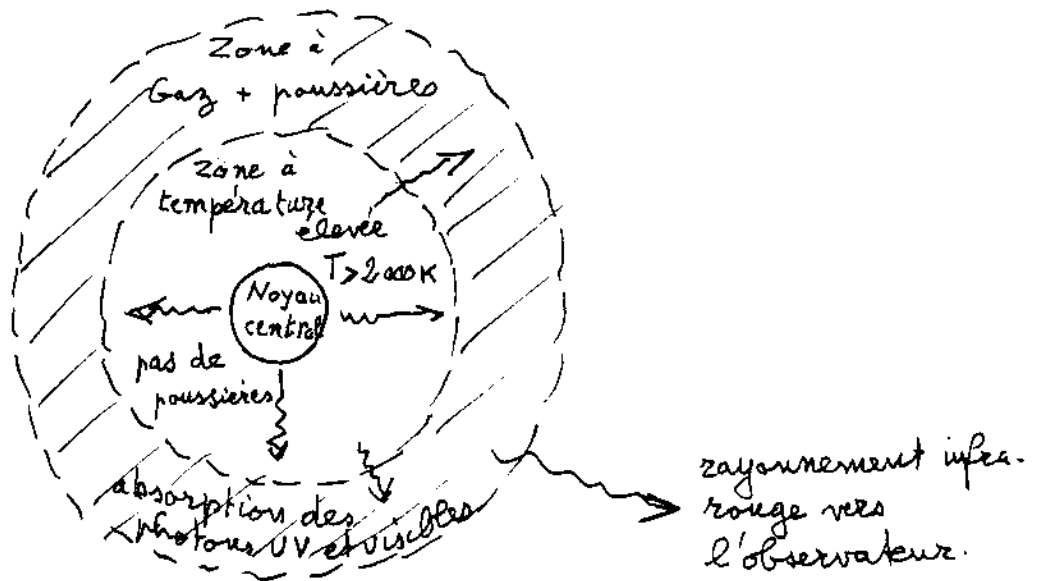 Zone à
Gaz + poussières
Zone à
température
élevée
T>2000K
Noyau
central
pas de
poussières
absorption des
photons UV et visibles
rayonnement infra-
rouge vers
l'observateur.